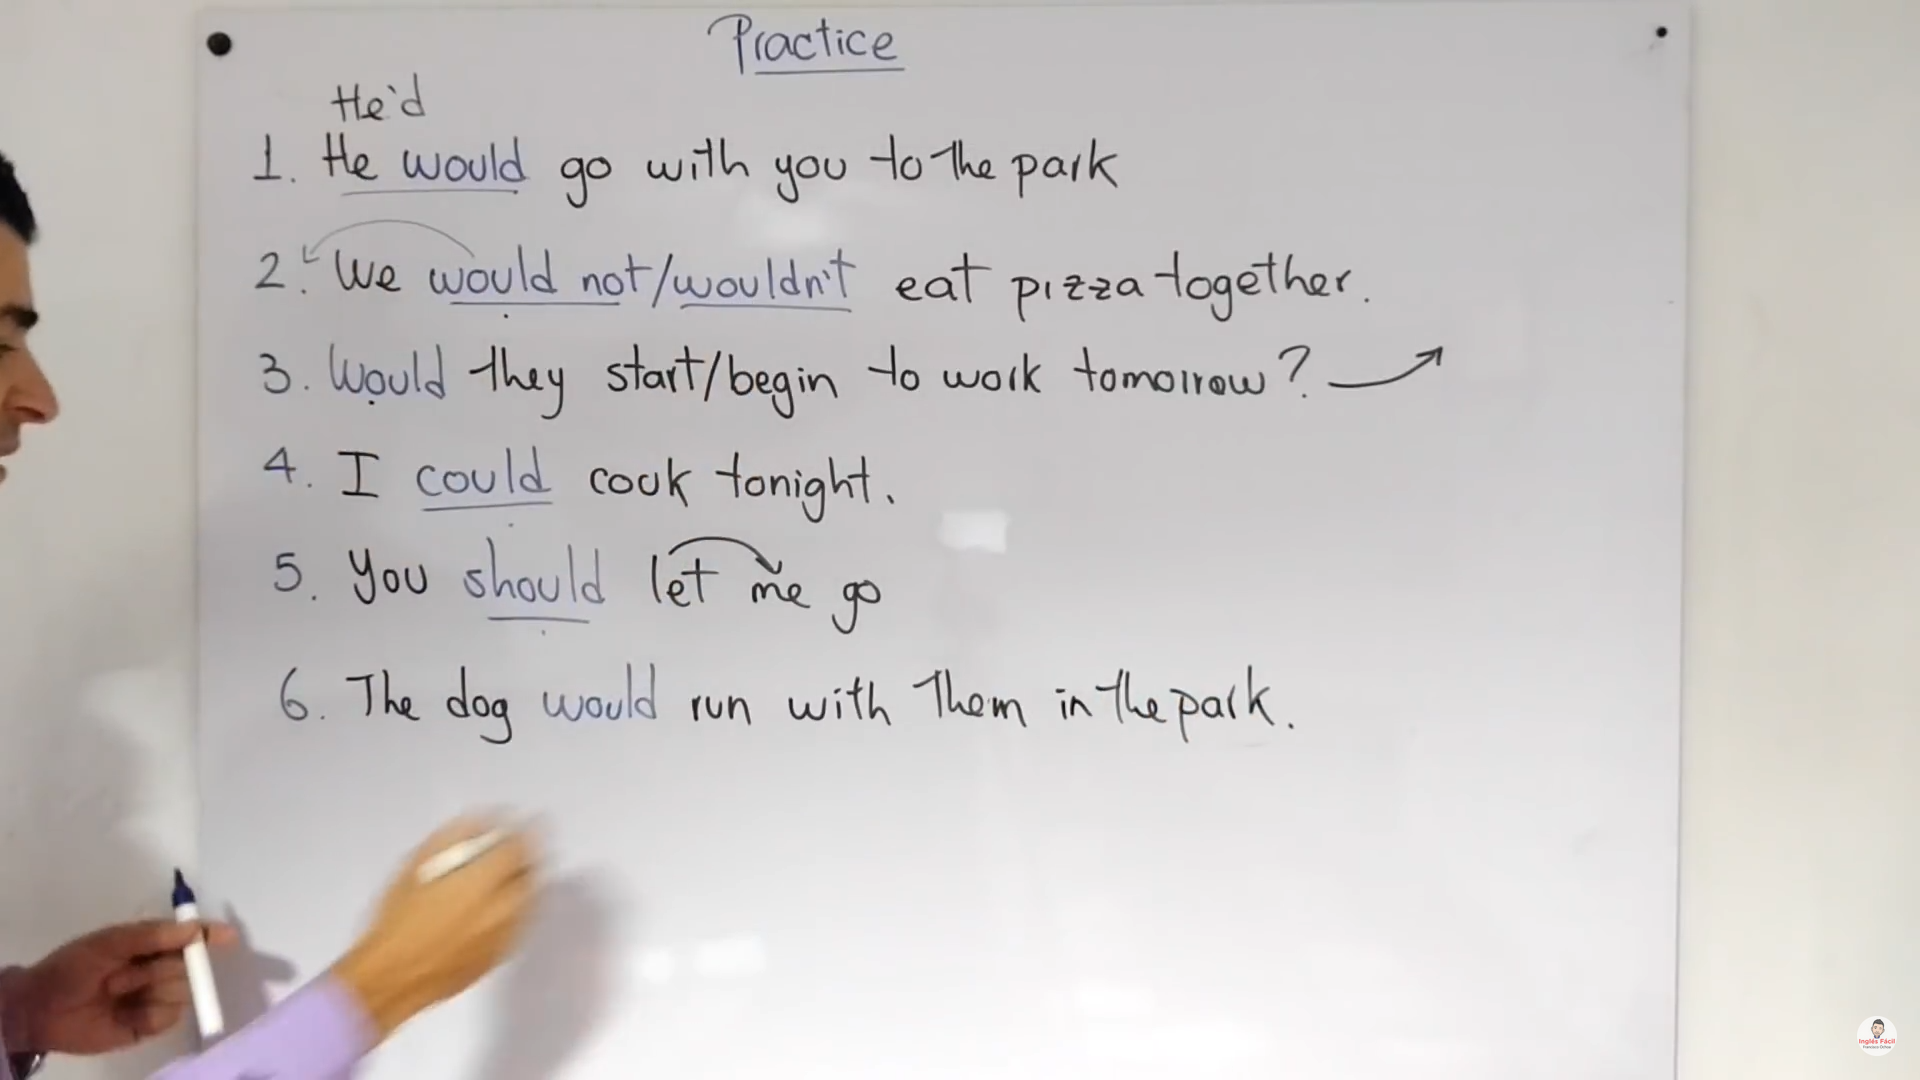 Practice
He'd
1. He would go with you to the park
2. We would not/wouldn't eat pizza together.
3. Would they start/begin to work tomorrow?
4. I could cook tonight.
5. You should let me go
6. The dog would run with them in the park.
Inglés Fácil